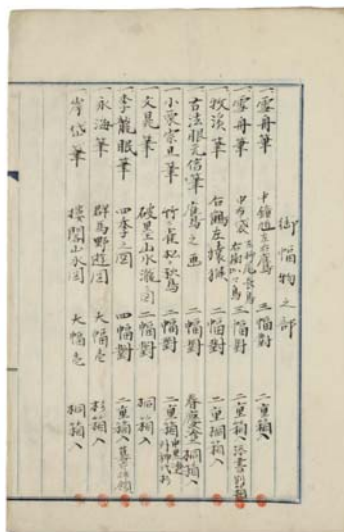 御幅物之部
一雪舟筆 中鍾馗左右鷹 三幅對 二重箱入
一雪舟筆 中布袋 三幅對 二重箱入
一牧溪筆 右鶴左猿猴 二幅對 二重桐箱入
一古法眼元信筆 鷹鳥之画 二幅對 桐箱入
一小栗宗丹筆 竹ニ雀松ニ 二幅對 二重箱入
一文晁筆 破墨山水瀧図 二幅對 桐箱入
一李龍眠筆 四季之図 四幅對 二重箱入
一永海筆 群馬野遊図 大幅壱 杉箱入
一岸岱筆 楼閣山水図 大幅壱 桐箱入